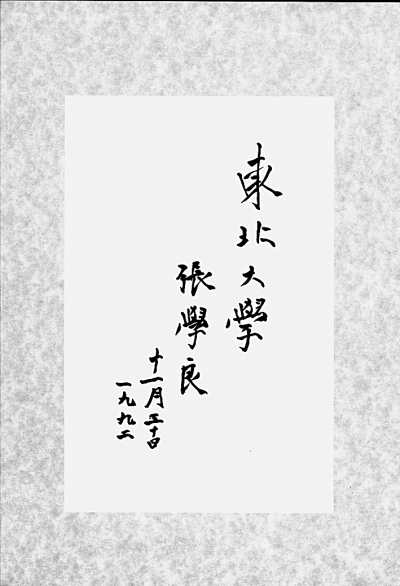 東北大學
張學良
十一月三十日
一九九二